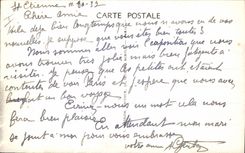 St Etienne
Chère Anna
CARTE POSTALE
Voila deja bien longtemps que nous n avons eu de vos
nouvelles, je suppose que vous êtes bien toutes 3.
Nous sommes allés voir l'exposition que nous
avons trouver très jolie mais bien fatigant a
visiter. Je pense que les petites ont étaient
contentes de voir Paris et j'espère que vous avez
fait un bon voyage.
Ecrivez nous un mot cela nous
fera bien plaisir.
En attendant mon mari
se joint a moi pour vous embrasser
votre amie